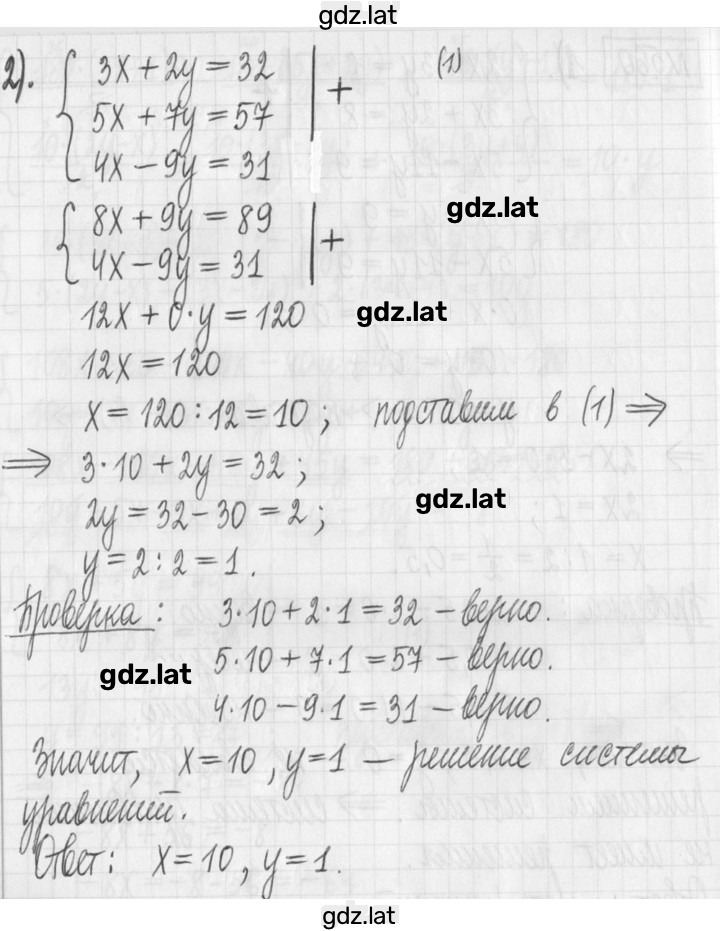 gdz.lat
2). 3x + 2y = 32 | + (1)
5x + 7y = 57
4x − 9y = 31
8x + 9y = 89 | + gdz.lat
4x − 9y = 31
12x + 0·y = 120 gdz.lat
12x = 120
x = 120 : 12 = 10 ; подставим в (1) ⇒
⇒ 3·10 + 2y = 32 ;
2y = 32 − 30 = 2 ; gdz.lat
y = 2 : 2 = 1 .
Проверка : 3·10 + 2·1 = 32 − верно.
5·10 + 7·1 = 57 − верно.
gdz.lat
4·10 − 9·1 = 31 − верно.
Значит, x = 10 , y = 1 — решение системы
уравнений.
Ответ : x = 10 , y = 1 .
gdz.lat